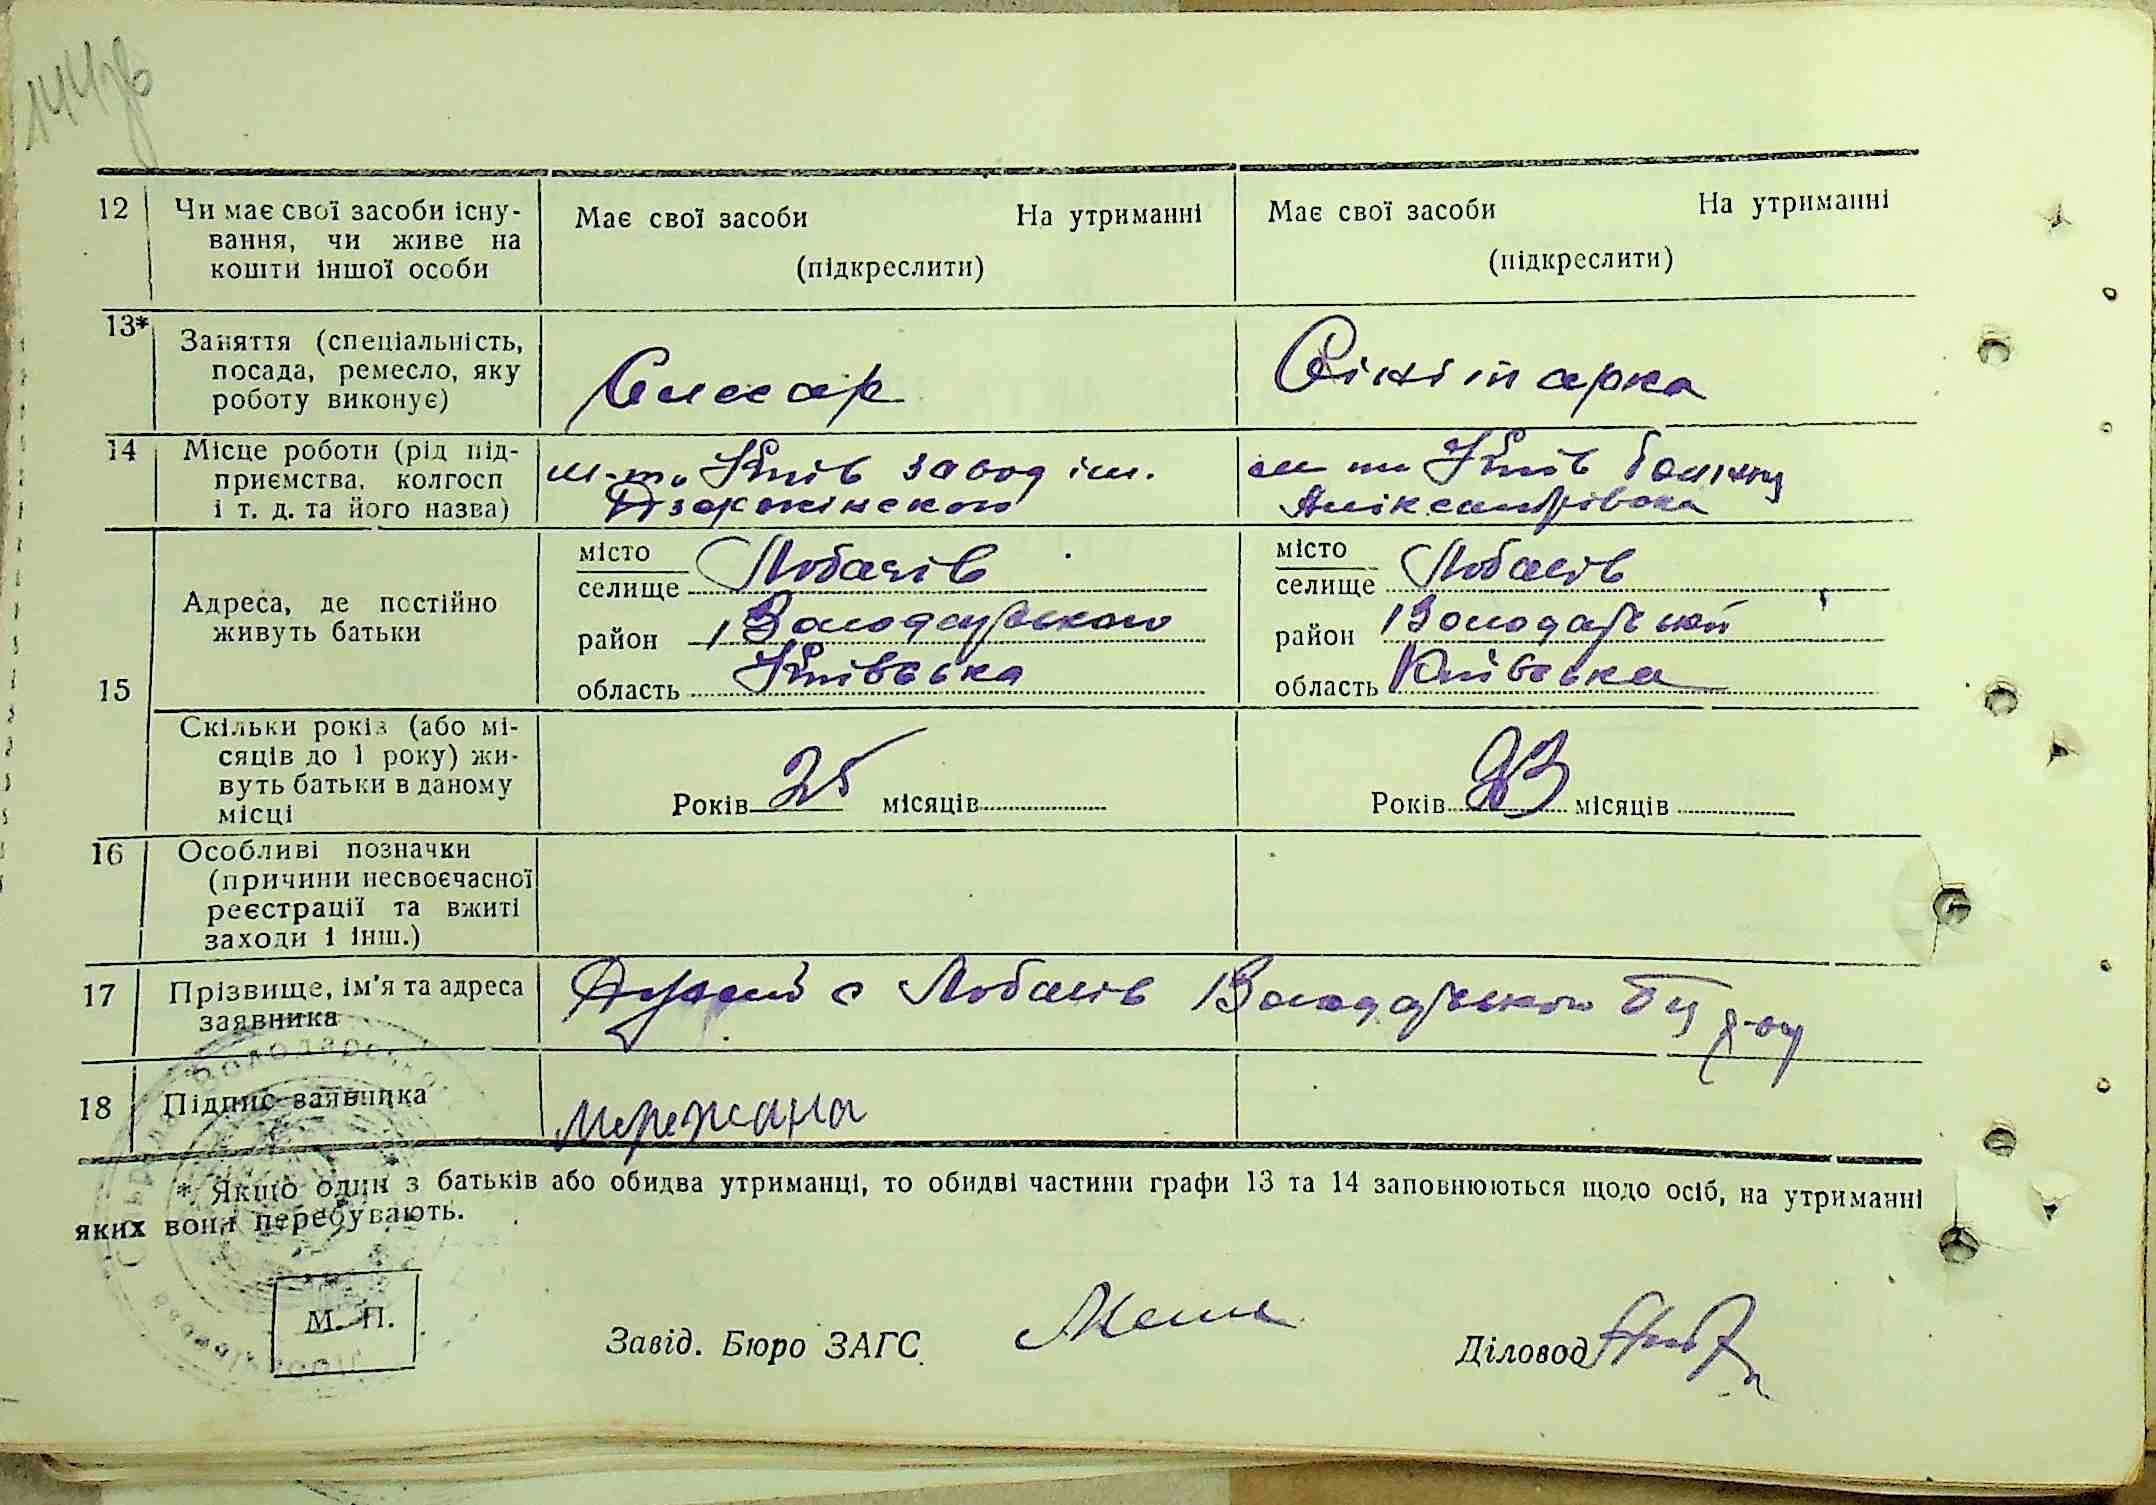 144зв
12 Чи має свої засоби існу-
вання, чи живе на
кошти іншої особи
Має свої засоби На утриманні
(підкреслити)
Має свої засоби На утриманні
(підкреслити)
13* Заняття (спеціальність,
посада, ремесло, яку
роботу виконує)
Слюсар
Сінітарка
14 Місце роботи (рід під-
приємства, колгосп
і т. д. та його назва)
м-то Київ завод ім.
Дзержинского
м то Київ
15 Адреса, де постійно
живуть батьки
місто
селище Лобачів
район Володарського
область Київська
місто
селище Лобачів
район Володарський
область Київська
Скільки років (або мі-
сяців до 1 року) жи-
вуть батьки в даному
місці
Років 25 місяців
Років 23 місяців
16 Особливі позначки
(причини несвоєчасної
реєстрації та вжиті
заходи і інш.)
17 Прізвище, ім'я та адреса
заявника
с Лобачів Володарського р-ну
18 Підпис заявника
мережана
* Якщо один з батьків або обидва утриманці, то обидві частини графи 13 та 14 заповнюються щодо осіб, на утриманні
яких вони перебувають.
М. П.
Завід. Бюро ЗАГС
Діловод